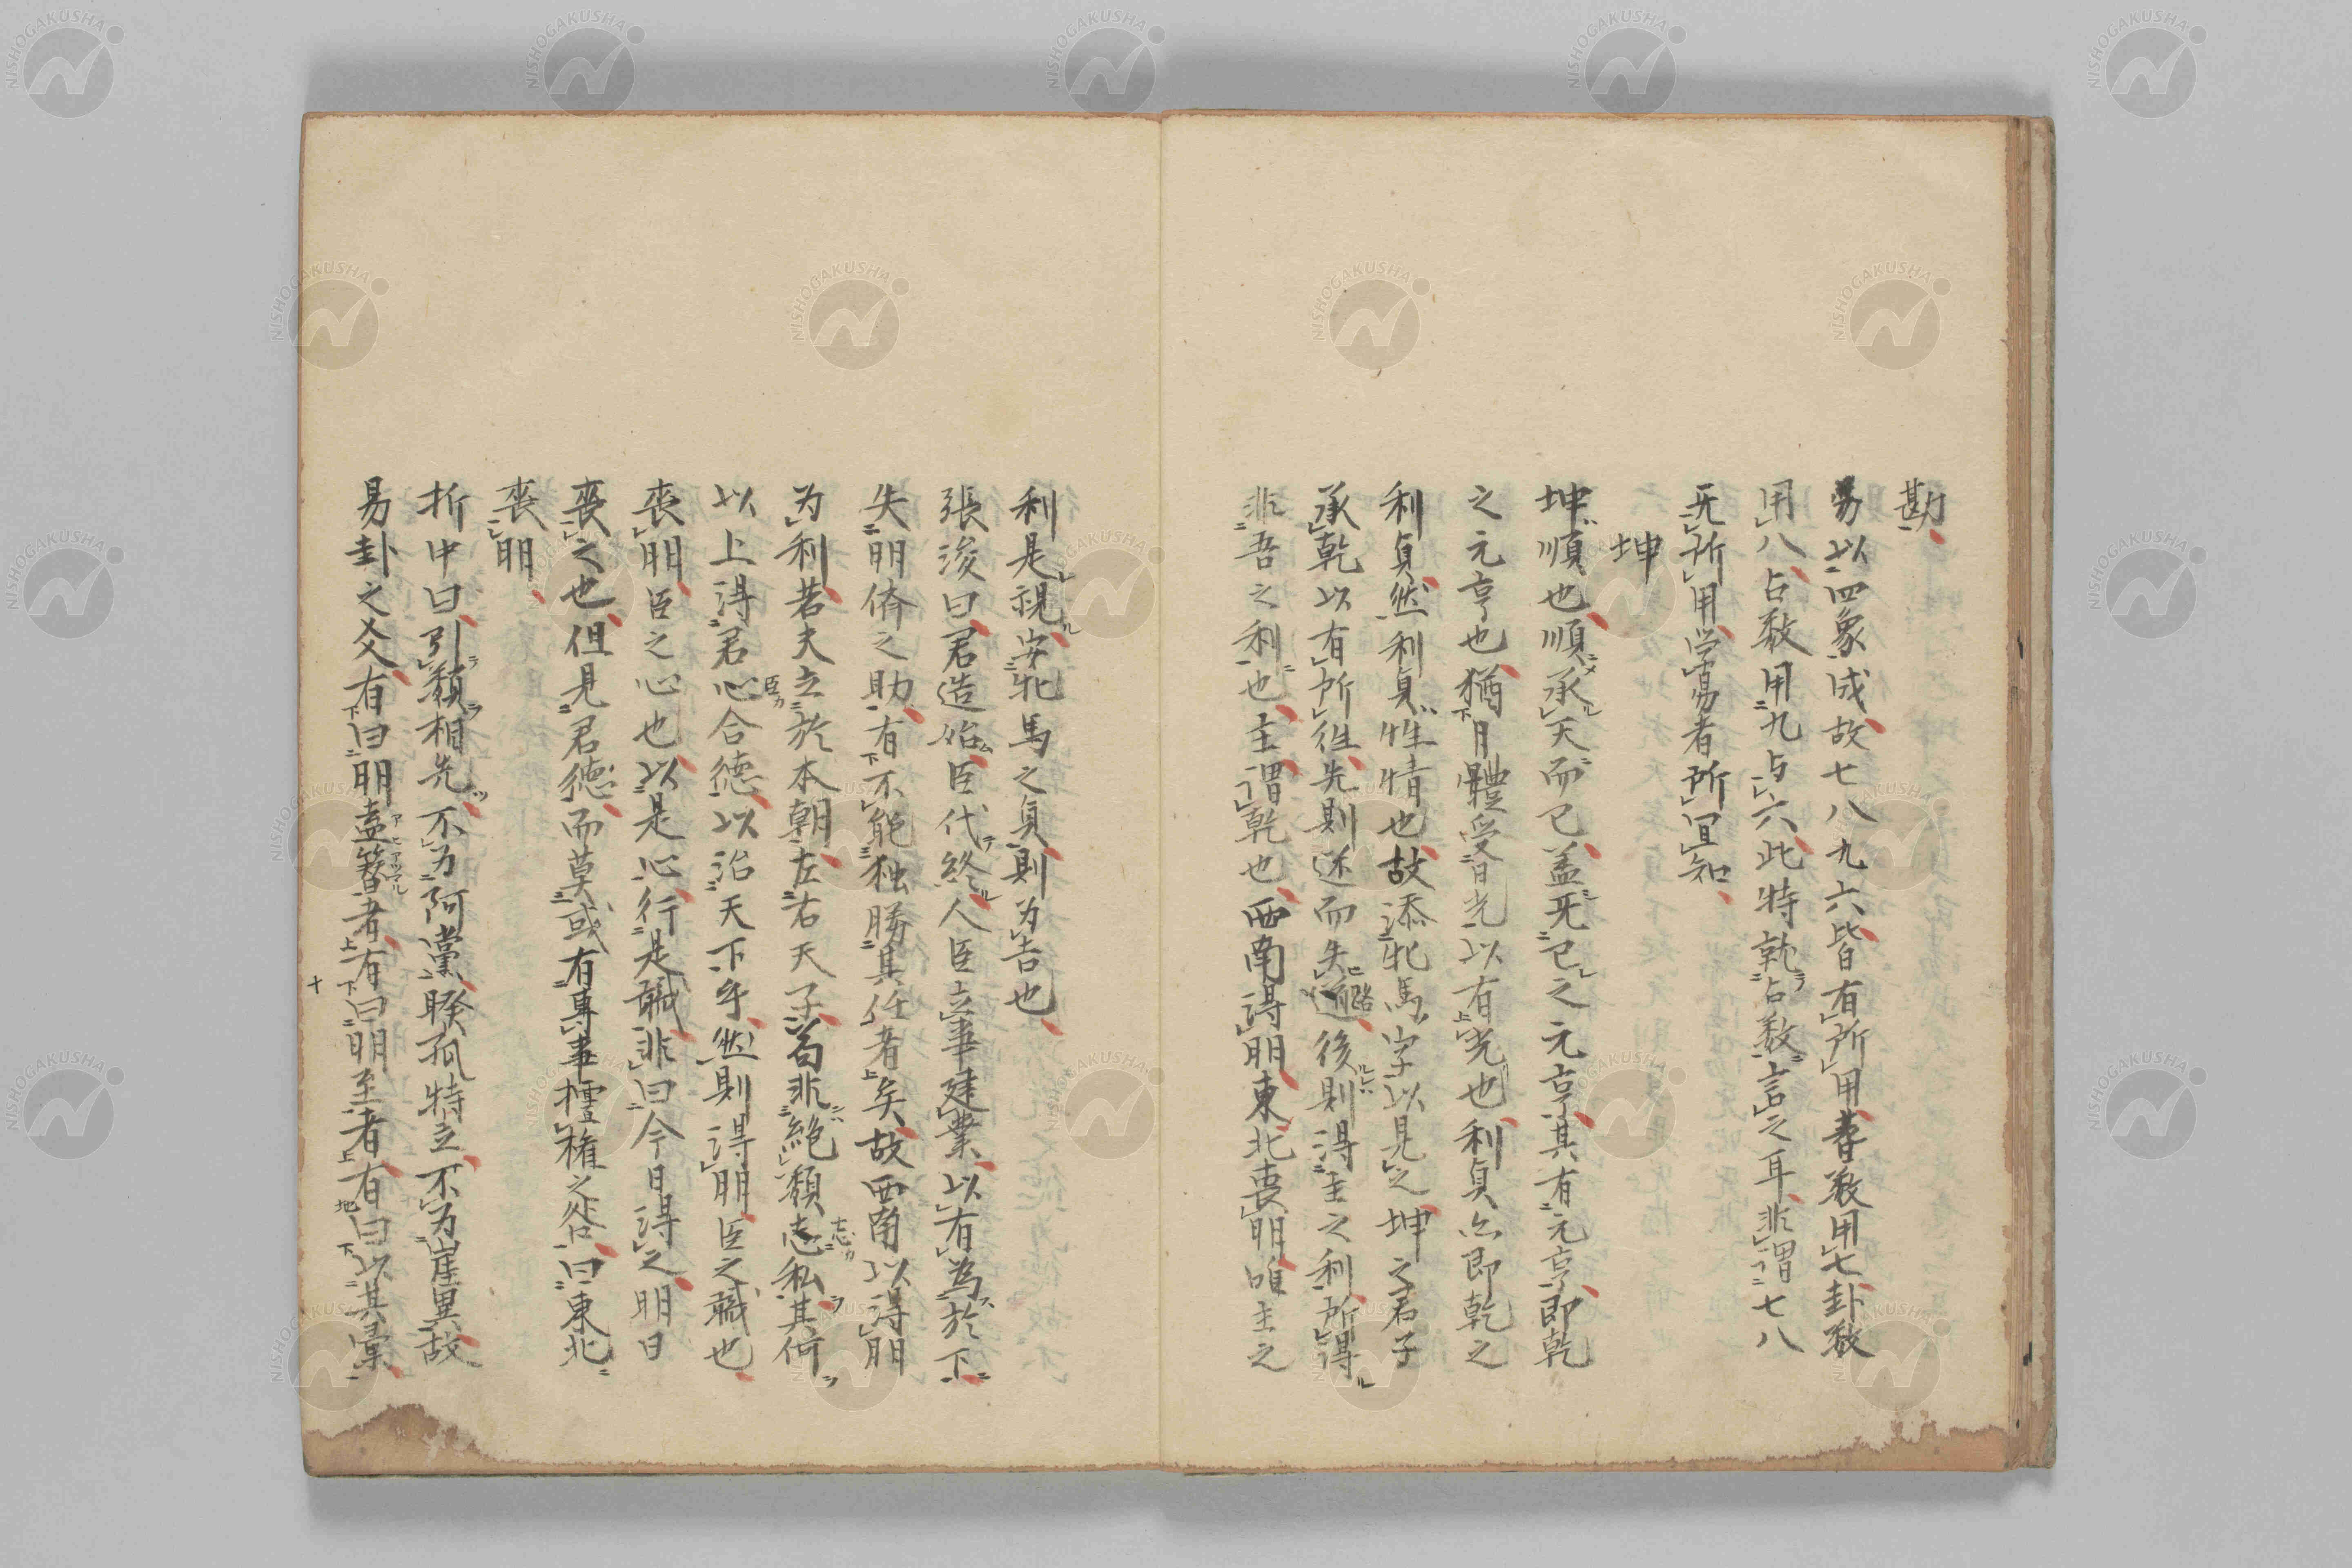 勘
易以四象成故七八九六皆有所用蓍数用七卦数
用八占数用九与六此特就占数言之耳非謂七八
无所用学易者所宜知
坤
坤順也順承天而已盖无已之元亨其有元亨即乾
之元亨也猶月體受日光以有光也利貞亦即乾之
利貞然利貞性情也故添牝馬字以見之坤之君子
承乾以有所往先則迷而失道後則得主之利所得
非吾之利也主謂乾也西南得朋東北喪朋唯主之
利是視安牝馬之貞則为吉也
張浚曰君造始臣代終人臣立事建業以有為於下
失朋儕之助有不能独勝其任者矣故西南以得朋
为利若夫立於本朝左右天子苟非絶類忘私其何
以上得君心合徳以治天下乎然則得朋臣之職也
喪朋臣之心也以是心行是職非曰今日得之明日
喪之也但見君徳而莫或有専事擅権之咎曰東北
喪朋
折中曰引類相先不为阿黨睽孤特立不为崖異故
易卦之爻有曰朋盍簪者有曰朋至者有曰以其彙